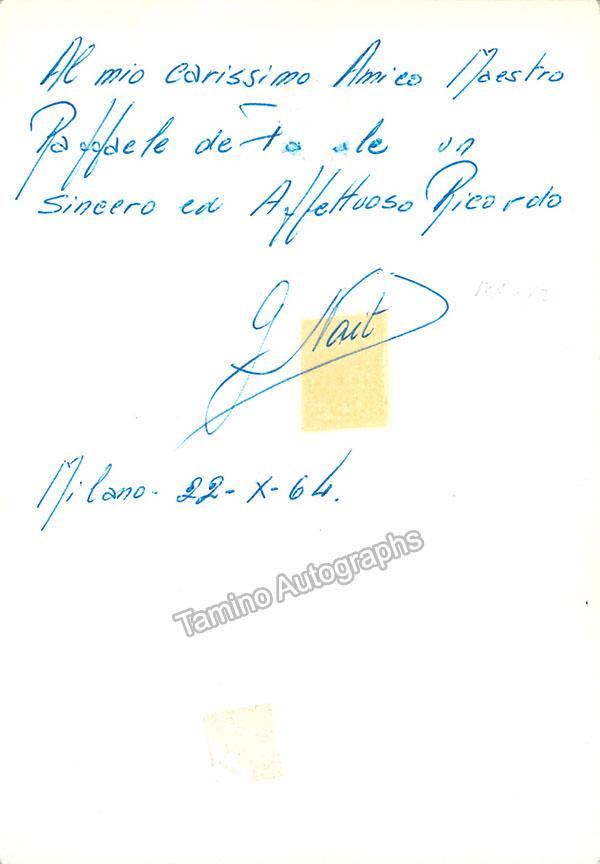 Al mio carissimo Amico Maestro
Raffaele de un
sincero ed Affettuoso Ricordo
G Nait
Milano- 22-X-64.
Tamino Autographs